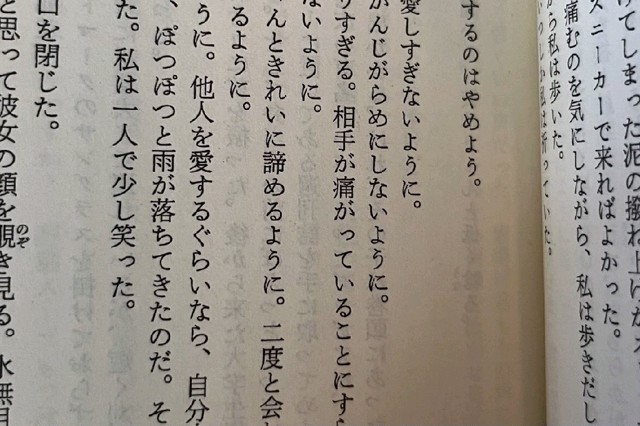 けてしまった泥の撥ね上げがス
スニーカーで来ればよかった。
痛むのを気にしながら、私は歩きだし
から私は歩いた。
いつしか私は祈っていた。
するのはやめよう。
愛しすぎないように。
がんじがらめにしないように。
りすぎる。相手が痛がっていることにすら
ないように。
んときれいに諦めるように。二度と会
るように。
うに。他人を愛するぐらいなら、自分
、ぽつぽつと雨が落ちてきたのだ。そ
た。私は一人で少し笑った。
口を閉じた。
と思って彼女の顔を覗き見る。水無月